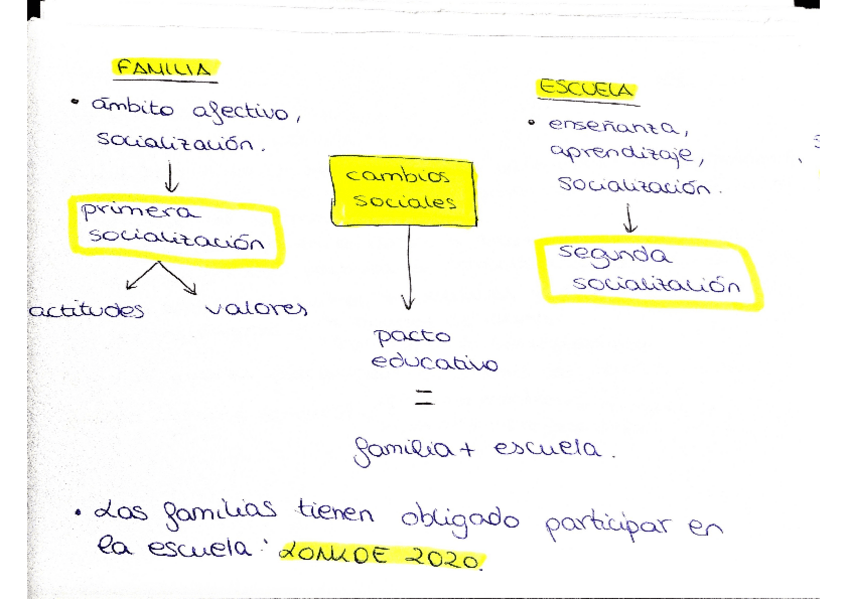 FAMILIA
• ámbito afectivo,
socialización.
primera
socialización
actitudes valores
cambios
sociales
pacto
educativo
=
familia + escuela.
ESCUELA
• enseñanza,
aprendizaje,
socialización.
segunda
socialización
• Las familias tienen obligado participar en
la escuela: LOMLOE 2020.